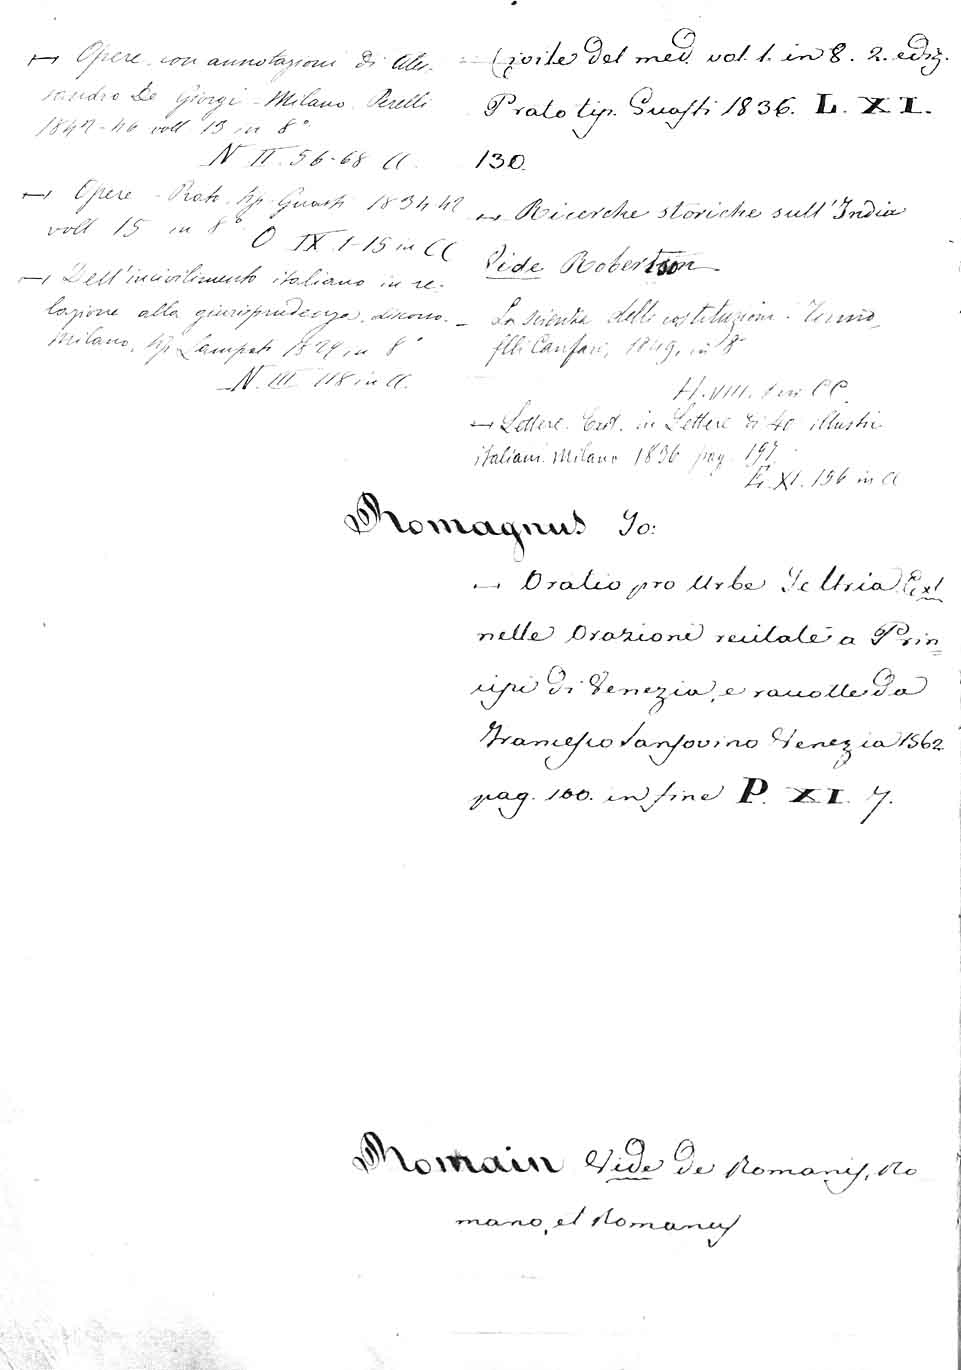 ↦ Opere con annotazioni di Ales-
sandro De Giorgi - Milano. Perelli
1842-46 voll 13 in 8°
N II. 56-68 CC.
↦ Opere - Prato tip. Guasti 1834-42
voll 15 in 8°
O IX. 1-15 in CC
↦ Dell'incivilimento italiano in re-
lazione alla giurisprudenza. discorso.
Milano, tip. Lampati 1829 in 8°
N. III 118 in CC.
Civile del med. vol. 1. in 8. 2. ediz.
Prato tip. Guasti 1836. L. XI.
130.
↦ Ricerche storiche sull'India
Vide Robertson
La scienza delle costituzioni. Torino,
flli Canfari, 1849, in 8°
H. VIII. in CC.
↦ Lettere. Ext. in Lettere di 40 illustri
italiani. Milano 1836 pag. 197.
E. XI. 156 in CC
Romagnus Jo:
↦ Oratio pro Urbe Ext
nelle Orazioni recitate a Prin=
cipi di Venezia, e raccolte da
Francesco Sansovino Venezia 1562
pag. 100. in fine P. XI. 7.
Romain Vide de Romanis, Ro
mano, et Romanus